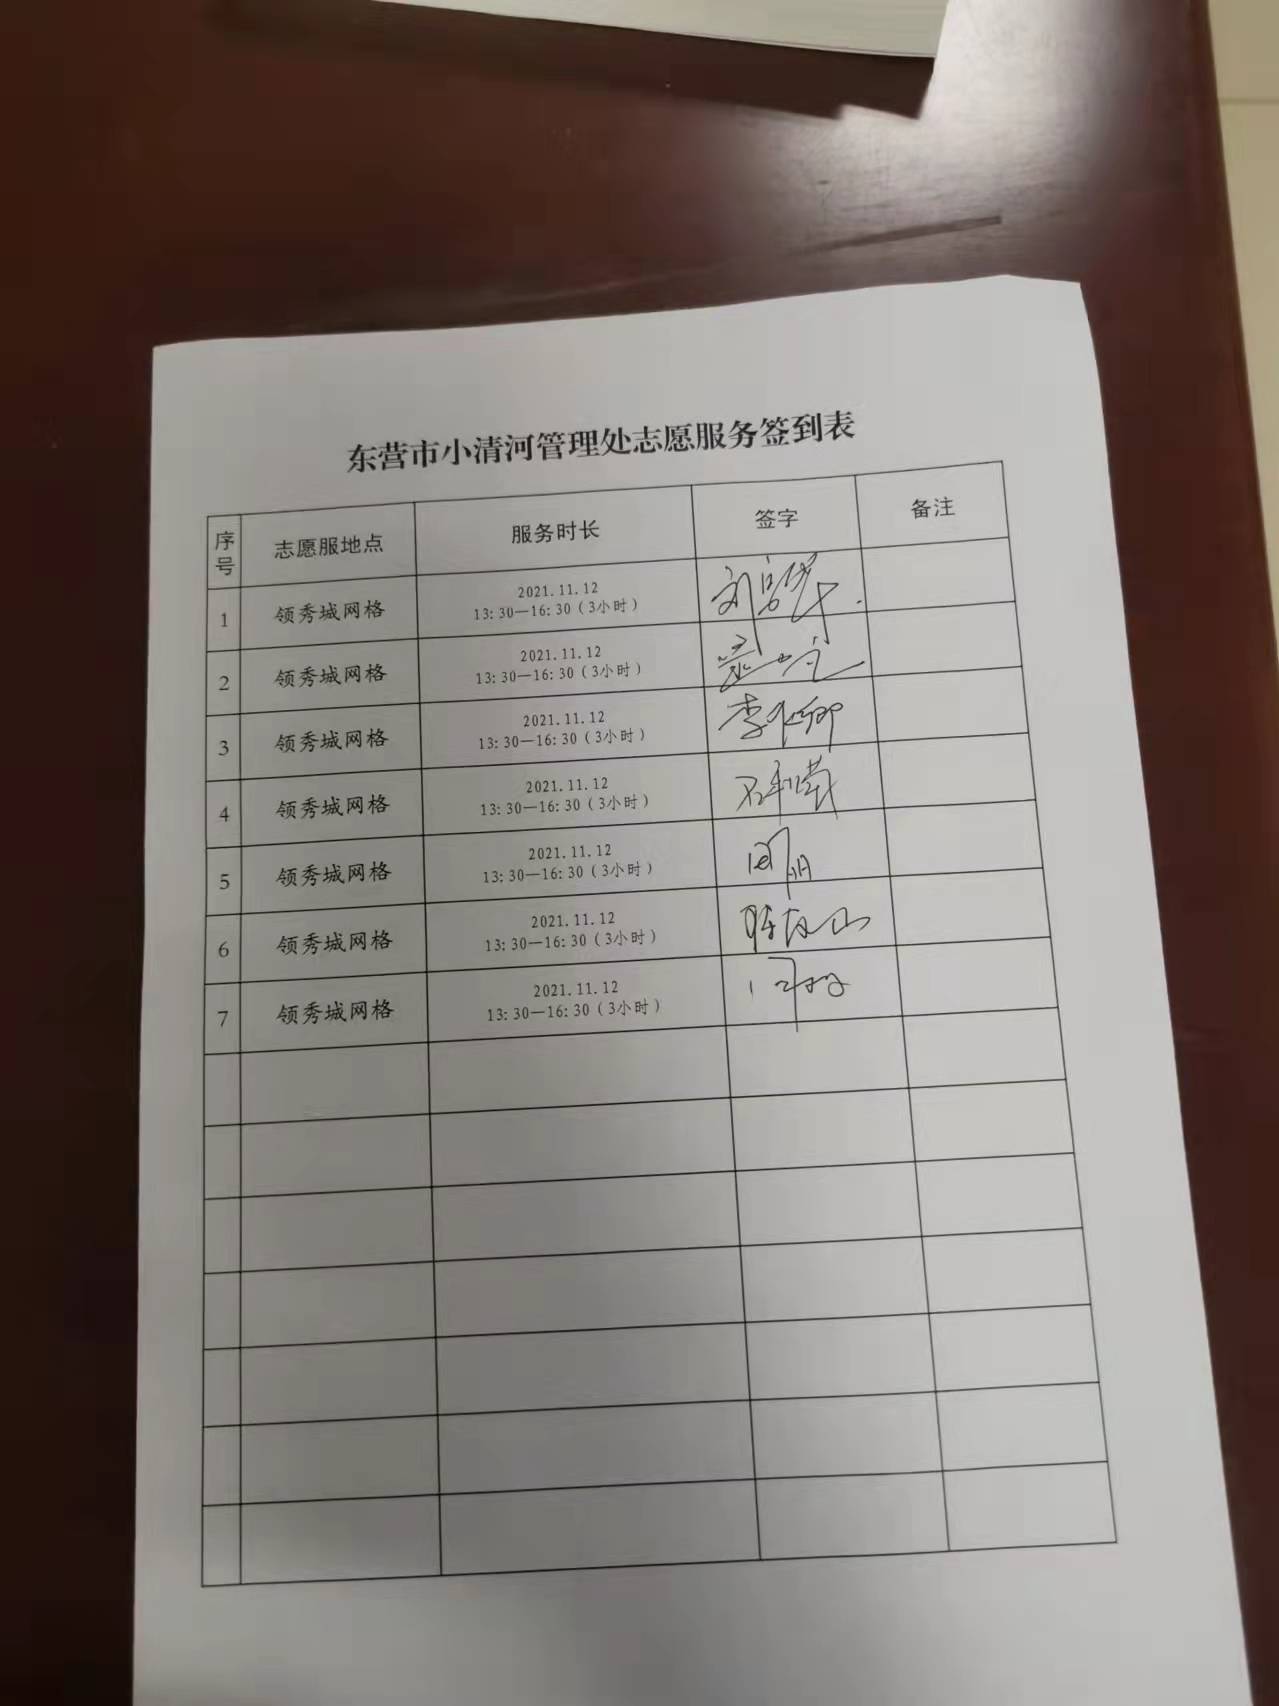 东营市小清河管理处志愿服务签到表
序号 志愿服地点 服务时长 签字 备注
1 领秀城网格 2021.11.12
13:30—16:30(3小时)
2 领秀城网格 2021.11.12
13:30—16:30(3小时)
3 领秀城网格 2021.11.12
13:30—16:30(3小时)
4 领秀城网格 2021.11.12
13:30—16:30(3小时)
5 领秀城网格 2021.11.12
13:30—16:30(3小时)
6 领秀城网格 2021.11.12
13:30—16:30(3小时)
7 领秀城网格 2021.11.12
13:30—16:30(3小时)